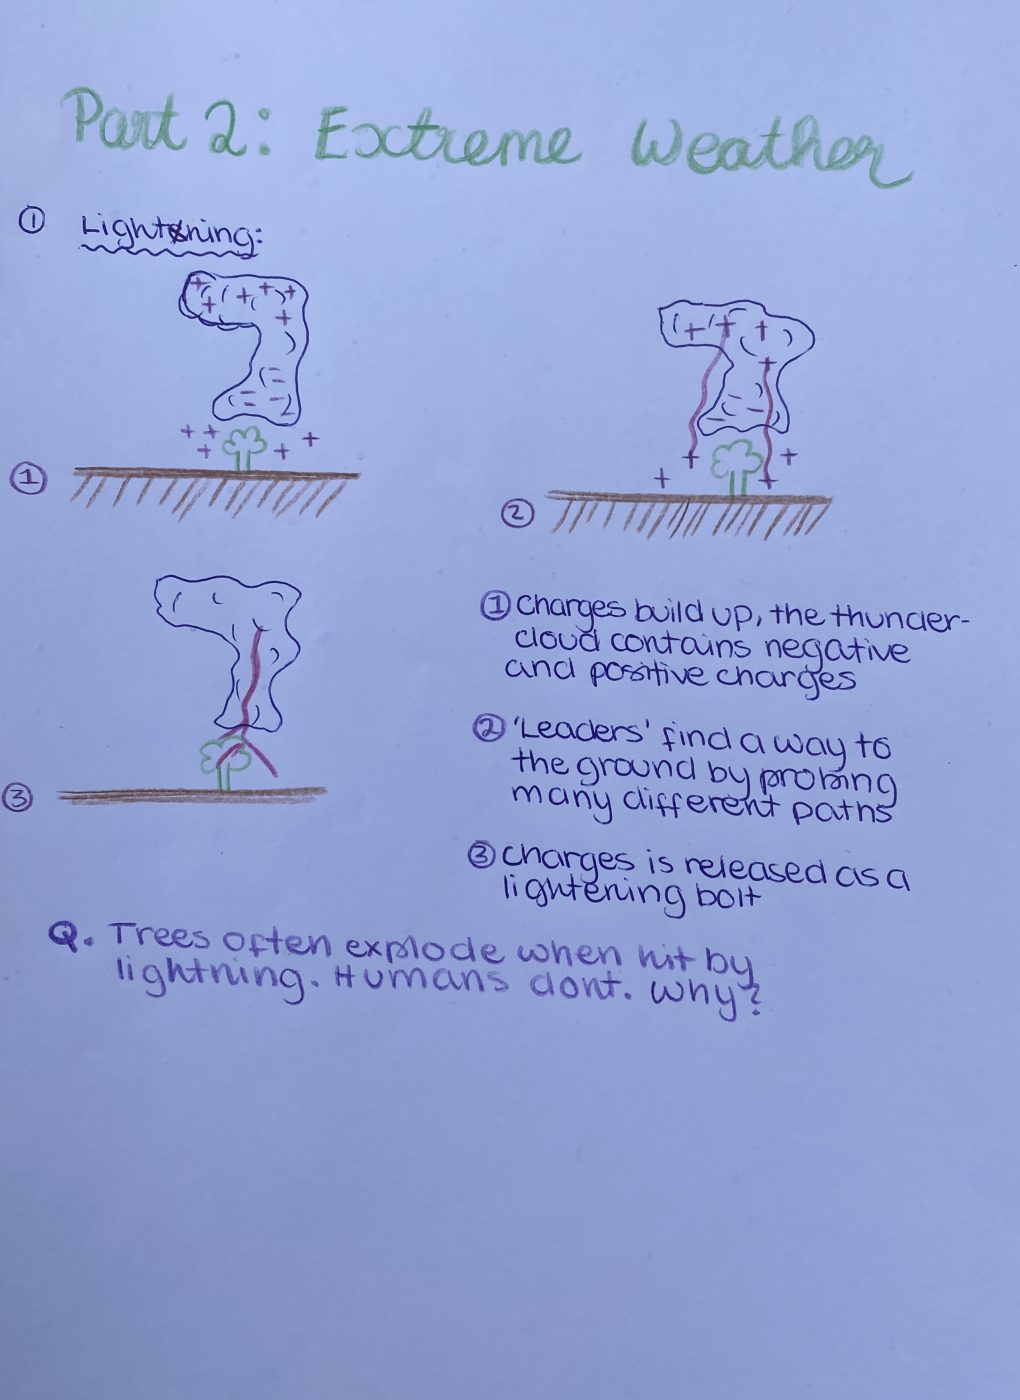 Part 2: Extreme Weather
① Lightning:
+ + + + +
+ +
++ +
+ +
①
+ + +
+
+ +
+ +
②
③
① Charges build up, the thunder-
cloud contains negative
and positive charges
② 'Leaders' find a way to
the ground by probing
many different paths
③ Charges is released as a
lightening bolt
Q. Trees often explode when hit by
lightning. Humans dont. Why?